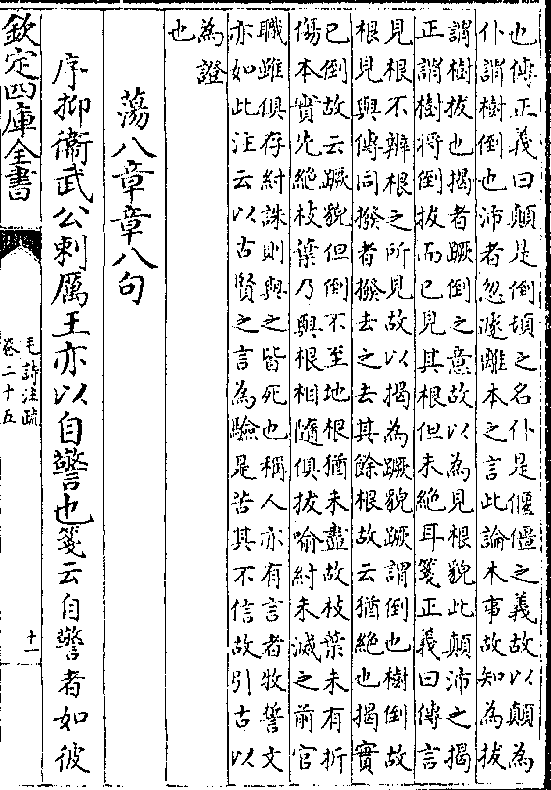 也傳正義曰顛是倒頓之名仆是僵僵之義故以顛為
仆謂樹倒也沛者忽遽離本之言此論木事故知為拔
謂樹拔也揭者蹶倒之意故以為見根貌此顛沛之揭
正謂樹將倒拔而已見其根但未絕耳箋正義曰傳言
見根不辨根之所見故以揭為蹶貌蹶謂倒也樹倒故
根見與傳同撥者撥去之去其餘根故云猶絕也揭實
已倒故云蹶貌但倒不至地根猶未盡故枝葉未有折
傷本實先絕枝葉乃與根相隨俱拔喻紂未滅之前官
職雖俱存紂誅則與之皆死也稱人亦有言者牧誓文
亦如此注云以古賢之言為驗是苦其不信故引古以
為證
也
蕩八章章八句
序抑衞武公刺厲王亦以自警也箋云自警者如彼
欽定四庫全書
毛詩注疏
卷二十五
十一